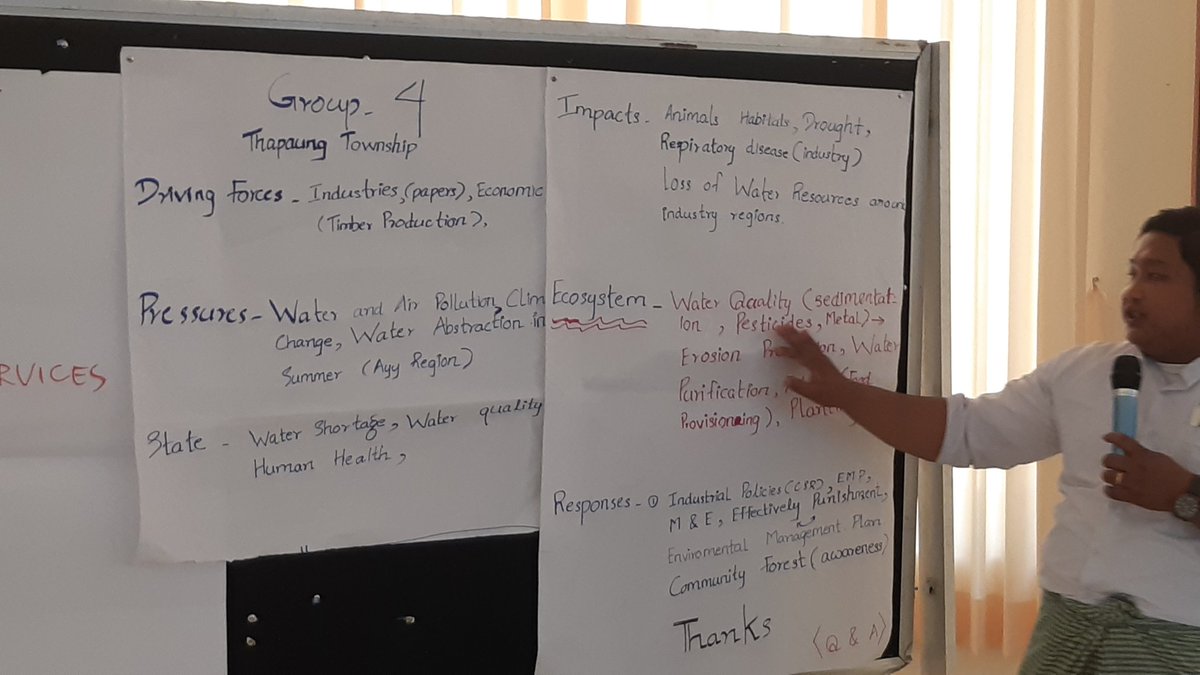 RVICES
Group - 4
Thapaung Township
Driving Forces - Industries, (papers), Economic
(Timber Production),
Pressures - Water and Air Pollution, Clim
Change, Water Abstraction in
Summer (Ayy Region)
State - Water Shortage, Water quality
Human Health,
Impacts - Animals Habitats, Drought,
Respiratory disease (industry)
Loss of Water Resources aroun
industry regions.
Ecosystem - Water Quality (sedimentat-
ion, Pesticides, Metal) →
Erosion Water
Purification, (Food
Provisioning),
Responses - ① Industrial Policies (CSR), EMP,
M & E, Effectively Punishment,
Enviromental Management Plan
Community Forest (awareness)
Thanks
〈Q & A〉